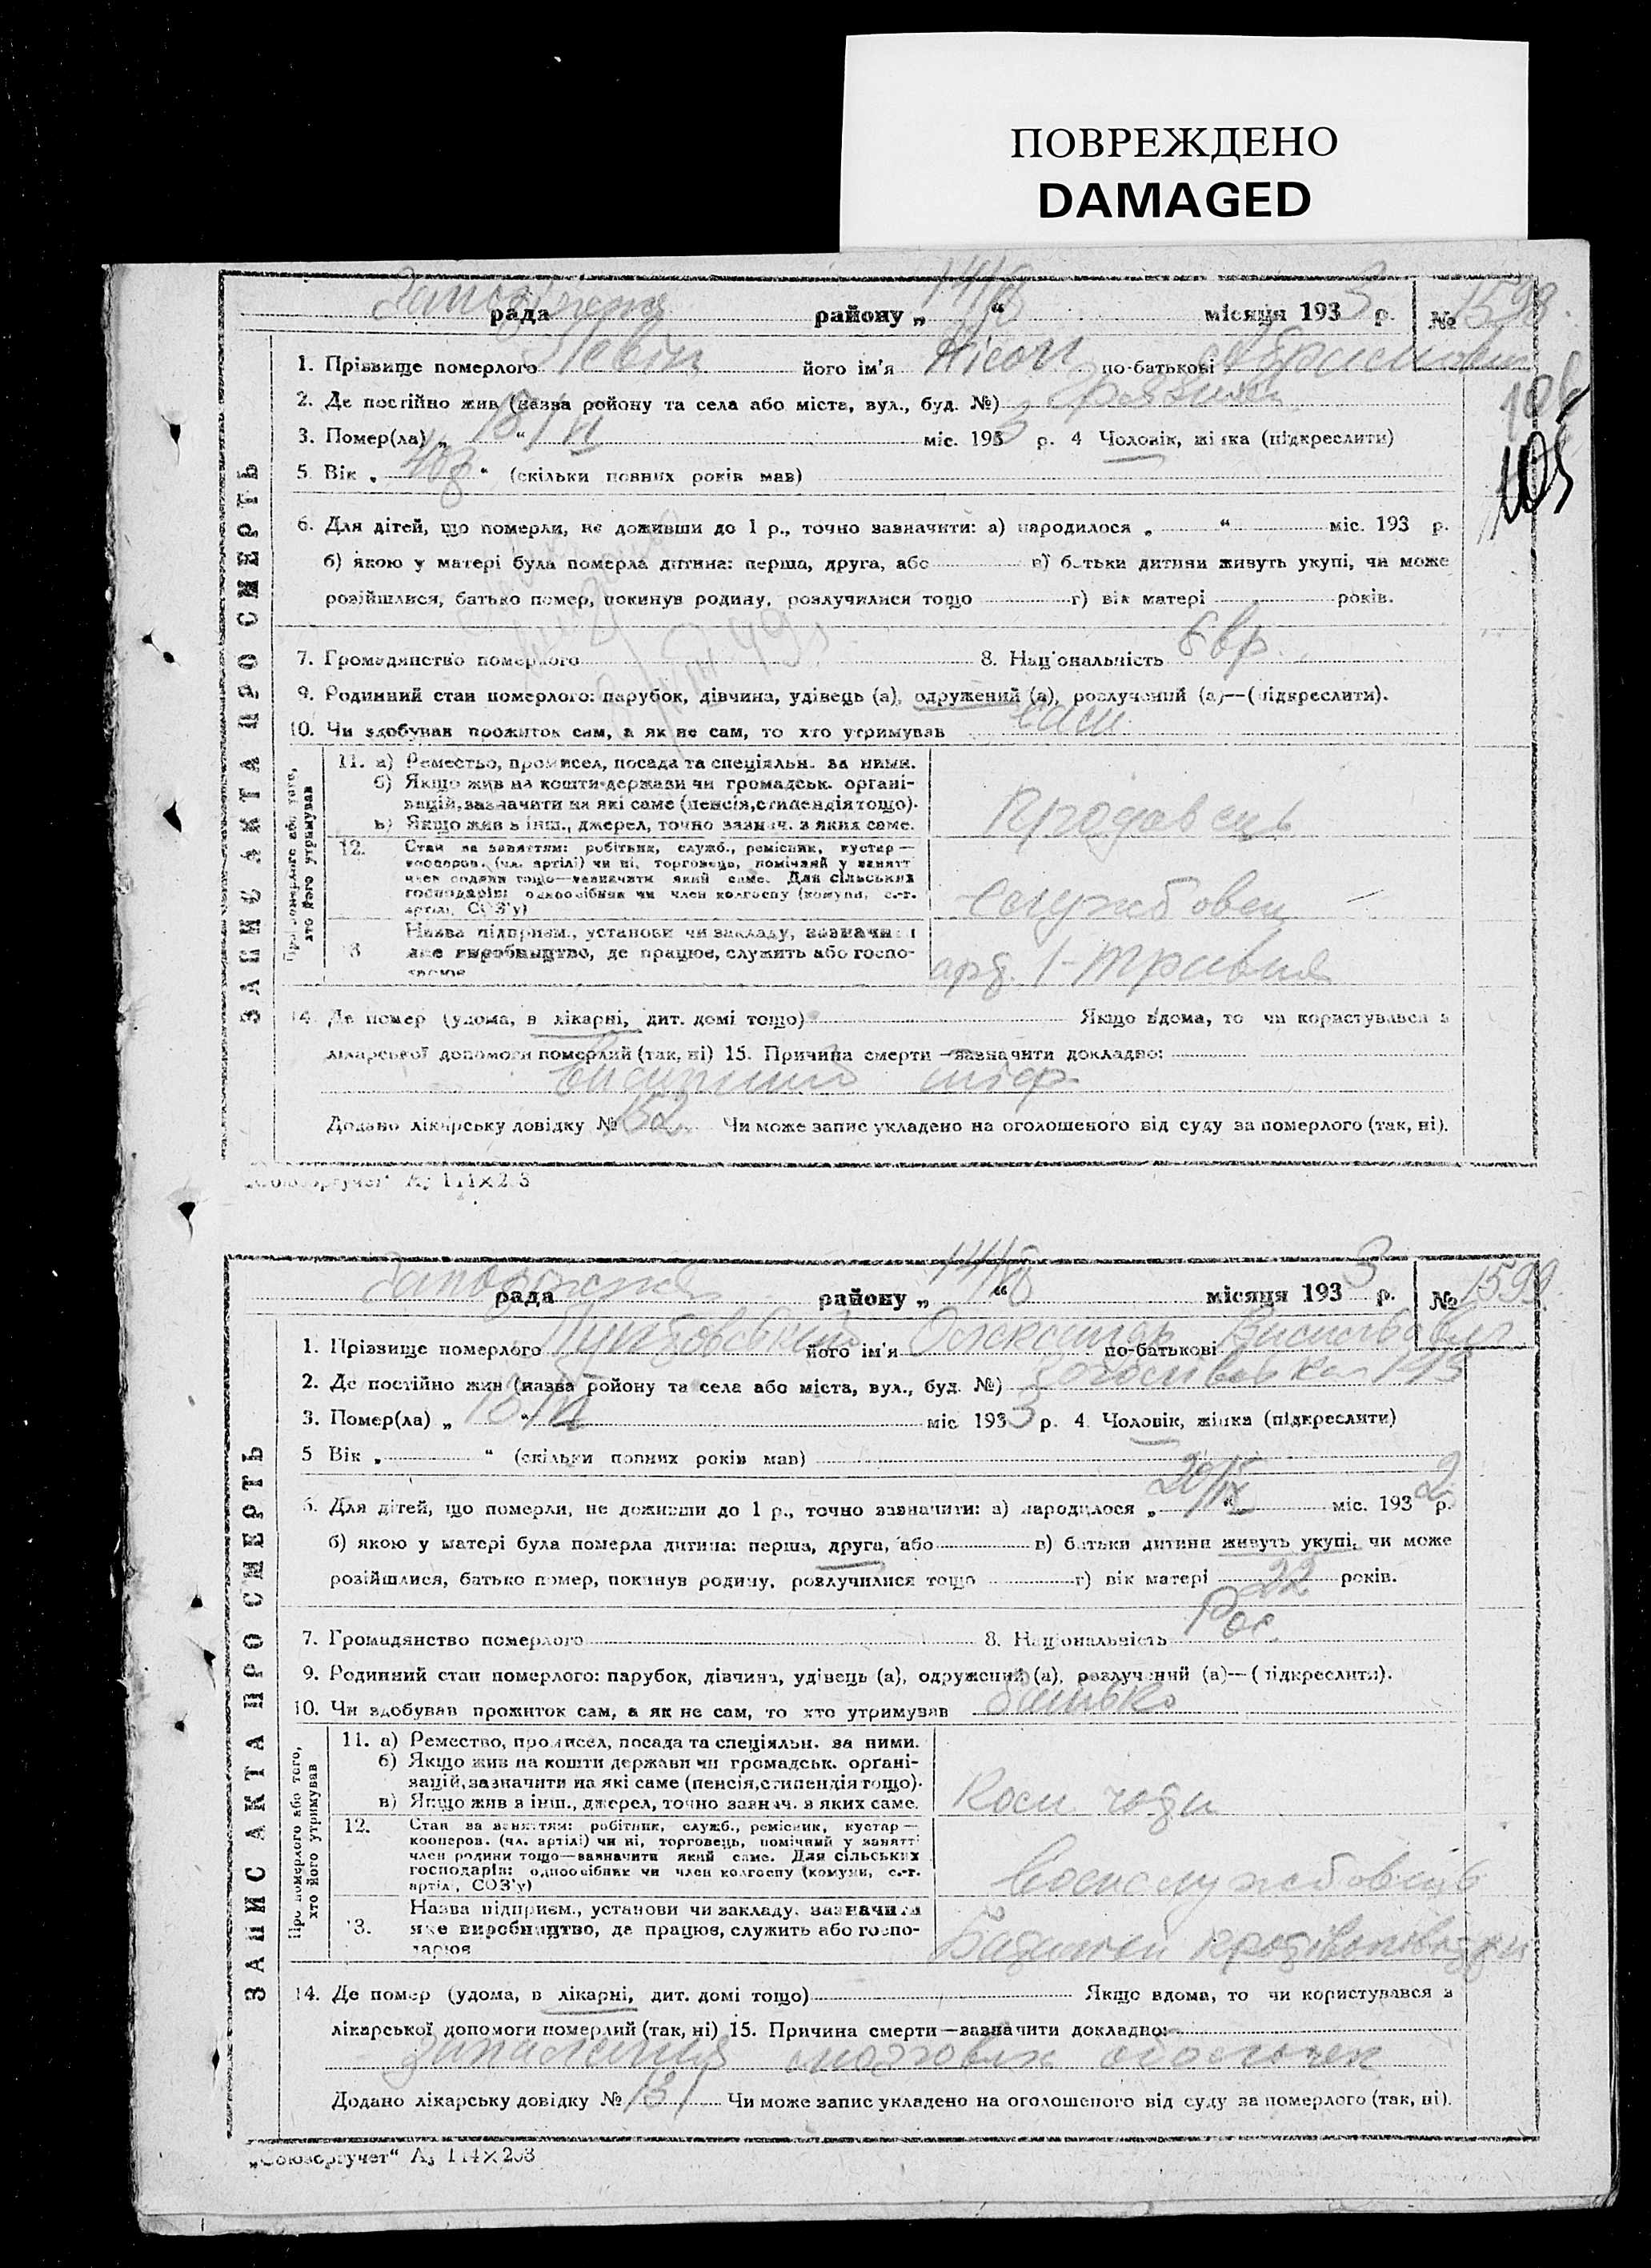 ПОВРЕЖДЕНО
DAMAGED
рада району „ 14/VI “ місяця 1933 р. № 1598.
1. Прізвище померлого Левін його ім'я Нісон по-батькові
2. Де постійно жив (назва ройону та села або міста, вул., буд. №)
3. Помер(ла) „ 13/VI “ міс. 1933 р. 4 Чоловік, жінка (підкреслити)
106
105
5. Вік „ “ (скільки повних років мав)
6. Для дітей, що померли, не доживши до 1 р., точно зазначити: а) народилося „ “ міс. 193 р.
б) якою у матері була померла дитина: перша, друга, або в) батьки дитини живуть укупі, чи може
розійшлися, батько помер, покинув родину, розлучилися тощо г) вік матері років.
7. Громадянство померлого 8. Національність Євр.
9. Родинний стан померлого: парубок, дівчина, удівець (а), одружений (а), розлучений (а)—(підкреслити).
10. Чи здобував прожиток сам, а як не сам, то хто утримував сам
ЗАПИС АКТА ПРО СМЕРТЬ
Про померлого або того, хто його утримував
11. а) Ремество, промисел, посада та спеціяльн. за ними.
б) Якщо жив на кошти держави чи громадськ. органі-
зацій, зазначити на які саме (пенсія, стипендія тощо).
в) Якщо жив з інш., джерел, точно зазнач. з яких саме.
Продавець
12. Стан за заняттям: робітник, служб., ремісник, кустар—
кооперов. (чл. артілі) чи ні, торговець, помічний у занятті
член родини тощо—зазначити який саме. Для сільських
господарів: одноосібник чи член колгоспу (комуни, с.-г.
артілі, СОЗ'у)
Службовец
13 Назва підприєм., установи чи закладу, зазначити
яке виробництво, де працює, служить або госпо-
дарює
1-Травня
14. Де помер (удома, в лікарні, дит. домі тощо) Якщо вдома, то чи користувався з
лікарської допомоги померлий (так, ні) 15. Причина смерти—зазначити докладно:
Висипний тіф
Додано лікарську довідку № 132 Чи може запис укладено на оголошеного від суду за померлого (так, ні).
„Союзоргучет“ А₅ 114×203
рада району „ 14/VI “ місяця 1933 р. № 1599.
1. Прізвище померлого його ім'я Олександр по-батькові
2. Де постійно жив (назва ройону та села або міста, вул., буд. №)
3. Помер(ла) „ 13/VI “ міс. 1933 р. 4. Чоловік, жінка (підкреслити)
5 Вік „ “ (скільки повних років мав)
6. Для дітей, що померли, не доживши до 1 р., точно зазначити: а) народилося „ 20/IX “ міс. 1932 р.
б) якою у матері була померла дитина: перша, друга, або в) батьки дитини живуть укупі, чи може
розійшлися, батько помер, покинув родину, розлучилися тощо г) вік матері 22 років.
7. Громадянство померлого 8. Національність Рос.
9. Родинний стан померлого: парубок, дівчина, удівець (а), одружений (а), розлучений (а)—(підкреслити).
10. Чи здобував прожиток сам, а як не сам, то хто утримував батько
ЗАПИС АКТА ПРО СМЕРТЬ
Про померлого або того, хто його утримував
11. а) Ремество, промисел, посада та спеціяльн. за ними.
б) Якщо жив на кошти держави чи громадськ. органі-
зацій, зазначити на які саме (пенсія, стипендія тощо).
в) Якщо жив з інш., джерел, точно зазнач. з яких саме.
12. Стан за заняттям: робітник, служб., ремісник, кустар—
кооперов. (чл. артілі) чи ні, торговець, помічний у занятті
член родини тощо—зазначити який саме. Для сільських
господарів: одноосібник чи член колгоспу (комуни, с.-г.
артілі, СОЗ'у)
13. Назва підприєм., установи чи закладу, зазначити
яке виробництво, де працює, служить або госпо-
дарює
14. Де помер (удома, в лікарні, дит. домі тощо) Якщо вдома, то чи користувався з
лікарської допомоги померлий (так, ні) 15. Причина смерти—зазначити докладно:
запалення мозгових оболочек
Додано лікарську довідку № 131 Чи може запис укладено на оголошеного від суду за померлого (так, ні).
„Союзоргучет“ А₅ 114×203